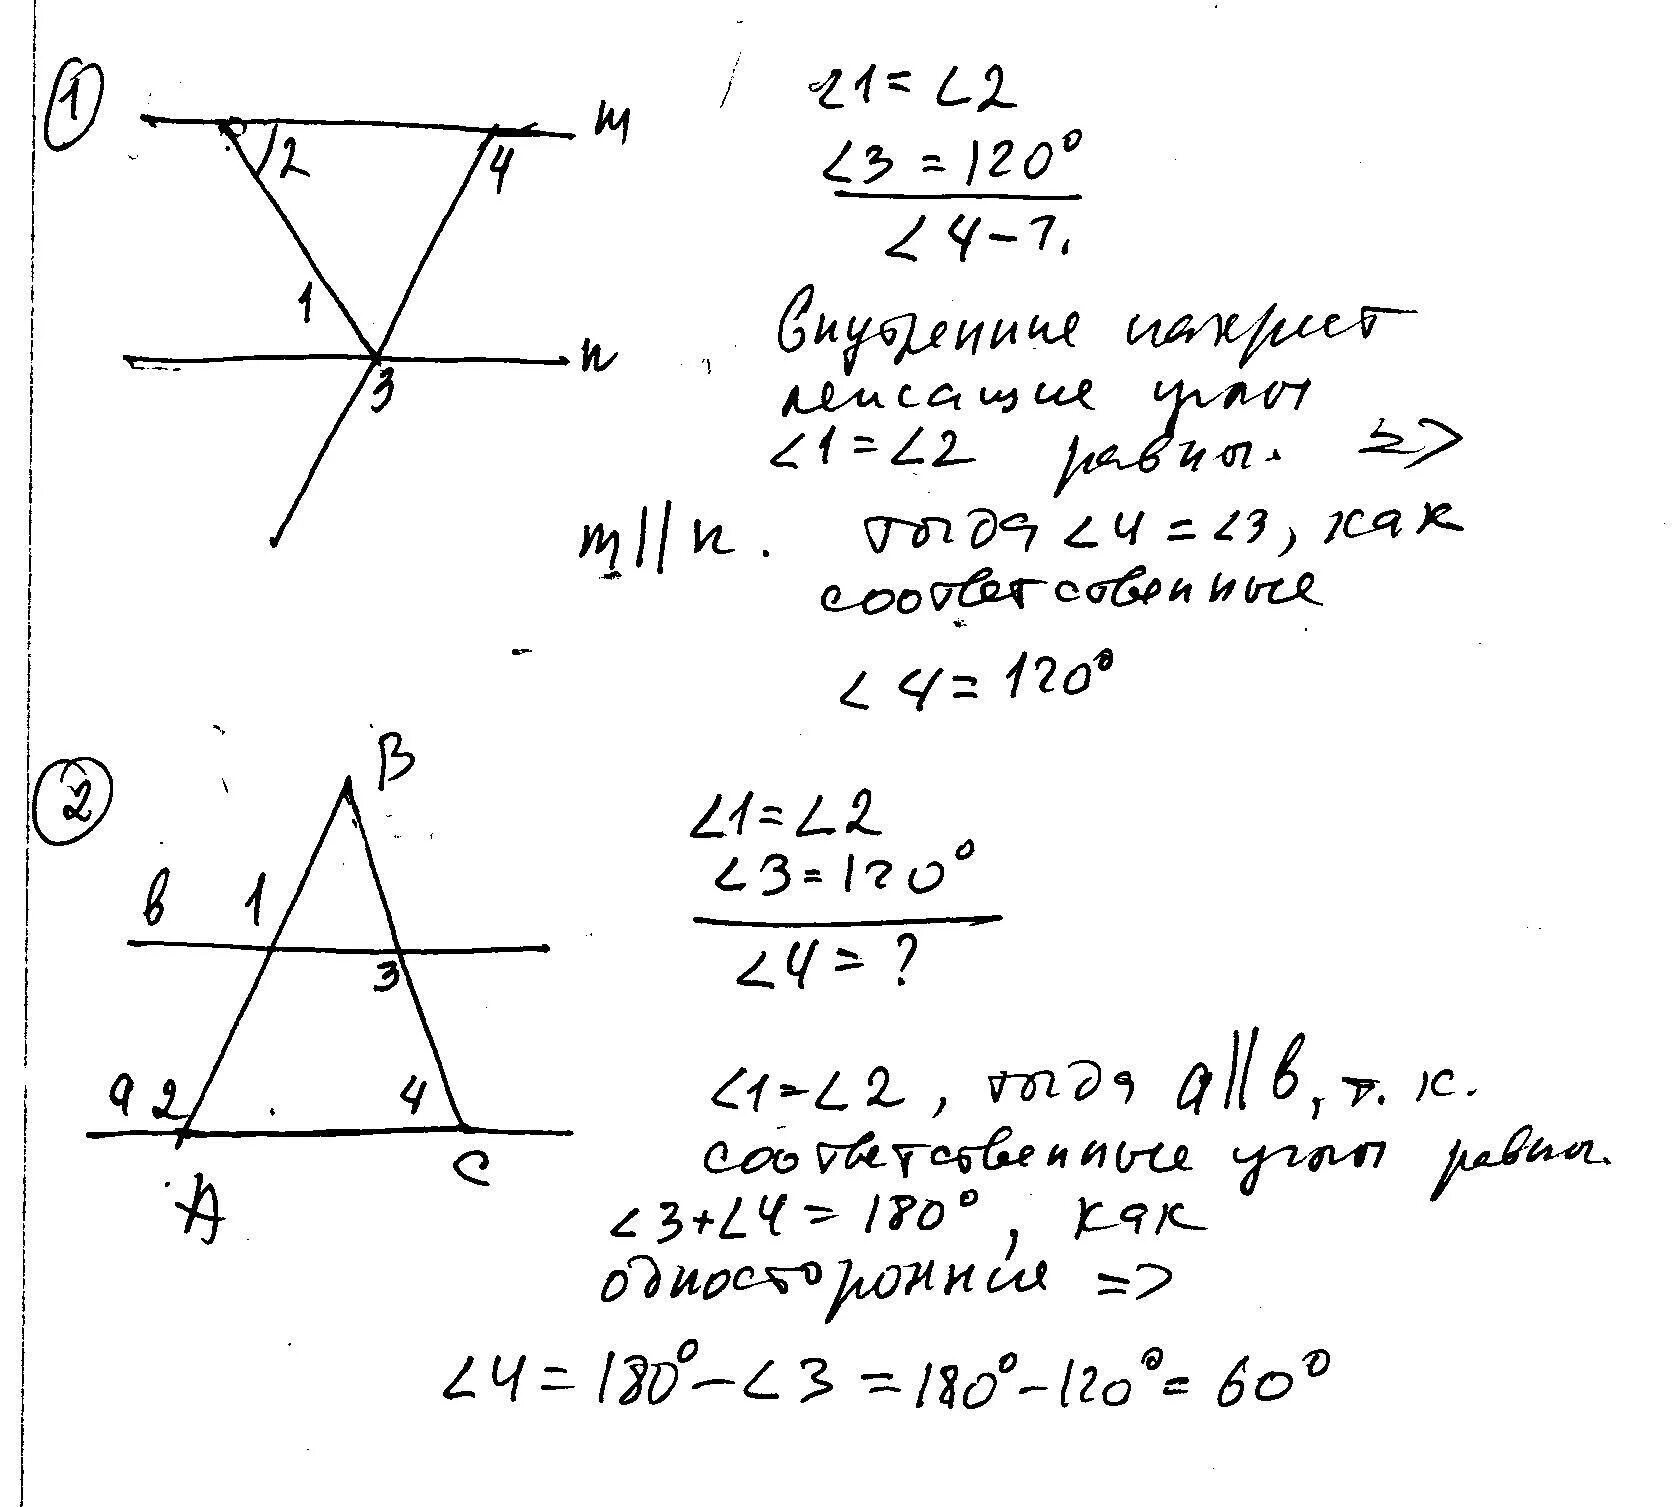 1
m
2
4
1
n
3
∠1 = ∠2
∠3 = 120°
∠4 - ?
Внутренние накрест
лежащие углы
∠1 = ∠2 равны. =>
m || n. тогда ∠4 = ∠3, как
соответственные
∠4 = 120°
2
B
в 1
3
a 2 4
A
C
∠1 = ∠2
∠3 = 120°
∠4 = ?
∠1 = ∠2, тогда a || в, т. к.
соответственные углы равны.
∠3 + ∠4 = 180°, как
односторонние =>
∠4 = 180° - ∠3 = 180° - 120° = 60°